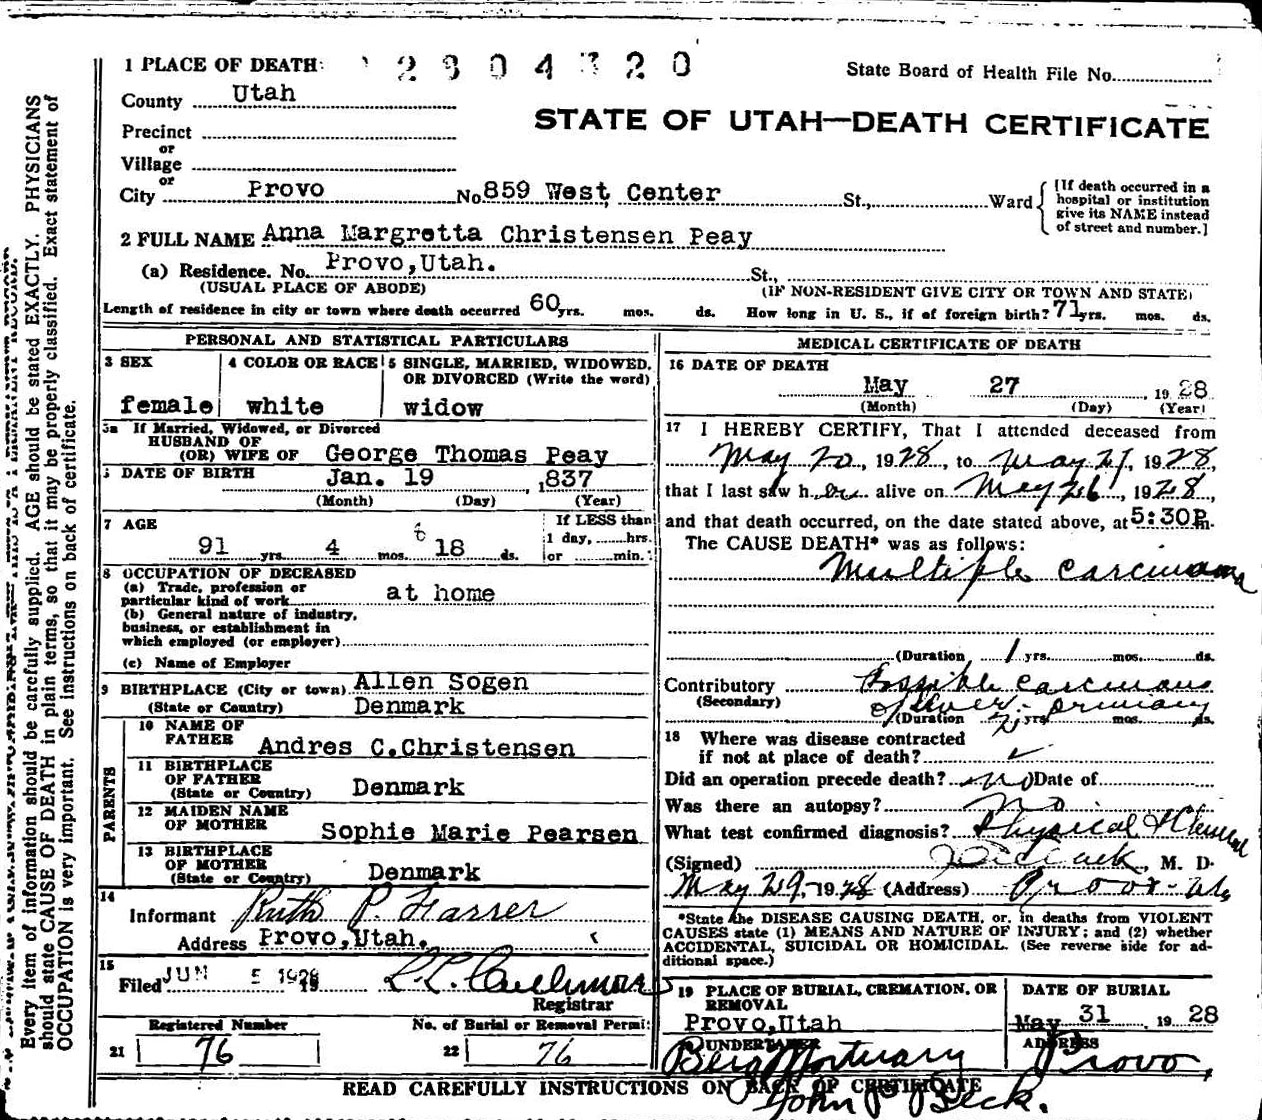 1 PLACE OF DEATH:
State Board of Health File No.
County Utah
STATE OF UTAH—DEATH CERTIFICATE
Precinct
or
Village
or
City Provo No 859 West Center St., Ward
[If death occurred in a hospital or institution give its NAME instead of street and number.]
2 FULL NAME Anna Margretta Christensen Peay
(a) Residence. No. Provo,Utah. St.,
(USUAL PLACE OF ABODE) (IF NON-RESIDENT GIVE CITY OR TOWN AND STATE)
Length of residence in city or town where death occurred 60 yrs. mos. ds. How long in U. S., if of foreign birth? 71 yrs. mos. ds.
PERSONAL AND STATISTICAL PARTICULARS
3 SEX
female
4 COLOR OR RACE
white
5 SINGLE, MARRIED, WIDOWED, OR DIVORCED (Write the word)
widow
5a If Married, Widowed, or Divorced
HUSBAND OF
(OR) WIFE OF George Thomas Peay
DATE OF BIRTH Jan. 19 1837
(Month) (Day) (Year)
7 AGE
If LESS than
1 day, hrs.
or min.
91 yrs. 4 mos. 18 ds.
8 OCCUPATION OF DECEASED
(a) Trade, profession or
particular kind of work at home
(b) General nature of industry,
business, or establishment in
which employed (or employer)
(c) Name of Employer
9 BIRTHPLACE (City or town) Allen Sogen
(State or Country) Denmark
PARENTS
10 NAME OF
FATHER Andres C.Christensen
11 BIRTHPLACE
OF FATHER
(State or Country) Denmark
12 MAIDEN NAME
OF MOTHER Sophie Marie Pearsen
13 BIRTHPLACE
OF MOTHER
(State or Country) Denmark
14
Informant Ruth P. Farrer
Address Provo,Utah.
15
Filed JUN 5 1928
Registrar
Registered Number
21 76
No. of Burial or Removal Permit
22 76
MEDICAL CERTIFICATE OF DEATH
16 DATE OF DEATH
May 27 1928
(Month) (Day) (Year)
17 I HEREBY CERTIFY, That I attended deceased from
May 20, 1928, to May 27, 1928,
that I last saw her alive on May 26, 1928,
and that death occurred, on the date stated above, at 5:30P m.
The CAUSE DEATH* was as follows:
Multiple carcinoma
(Duration 1 yrs. mos. ds.
Contributory Possible carcinoma
(Secondary) of liver - primary
(Duration yrs. mos. ds.
18 Where was disease contracted
if not at place of death?
Did an operation precede death? no Date of
Was there an autopsy? no
What test confirmed diagnosis? Physical & Clinical
(Signed) M. D.
May 29, 1928 (Address) Provo - Utah
*State the DISEASE CAUSING DEATH, or, in deaths from VIOLENT
CAUSES state (1) MEANS AND NATURE OF INJURY; and (2) whether
ACCIDENTAL, SUICIDAL OR HOMICIDAL. (See reverse side for ad-
ditional space.)
19 PLACE OF BURIAL, CREMATION, OR
REMOVAL
Provo,Utah
DATE OF BURIAL
May 31 1928
UNDERTAKER
Berg Mortuary
John P Beck.
ADDRESS
Provo,
READ CAREFULLY INSTRUCTIONS ON BACK OF CERTIFICATE
Every item of information should be carefully supplied. AGE should be stated EXACTLY. PHYSICIANS
should state CAUSE OF DEATH in plain terms, so that it may be properly classified. Exact statement of
OCCUPATION is very important. See instructions on back of certificate.